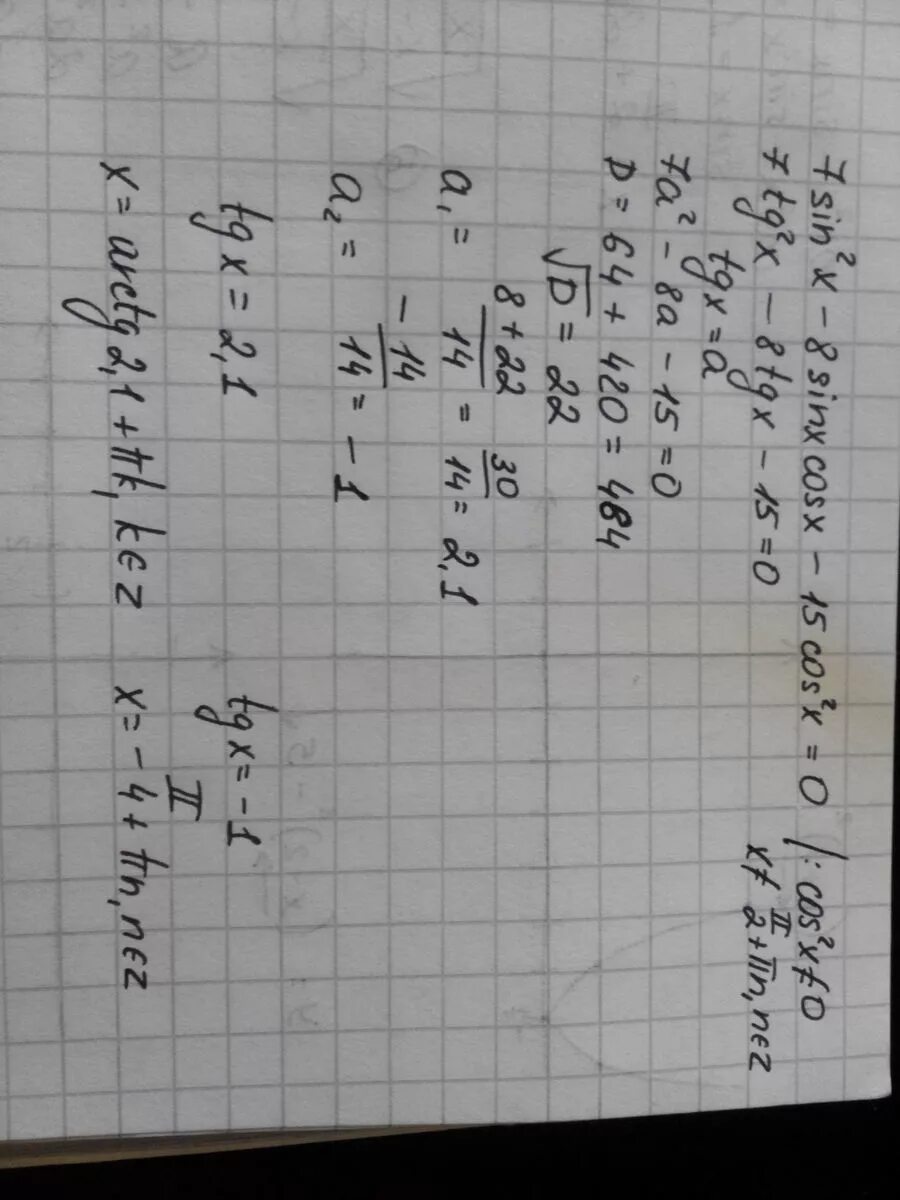 7 sin²x - 8 sinx cosx - 15 cos²x = 0 | : cos²x ≠ 0
7 tg²x - 8 tg x - 15 = 0 x ≠ π/2 + πn, n∈z
tg x = a
7a² - 8a - 15 = 0
D = 64 + 420 = 484
√D = 22
a₁ = (8 + 22)/14 = 30/14 = 2,1
a₂ = -14/14 = -1
tg x = 2,1 tg x = -1
x = arctg 2,1 + πk, k∈z x = -π/4 + πn, n∈z